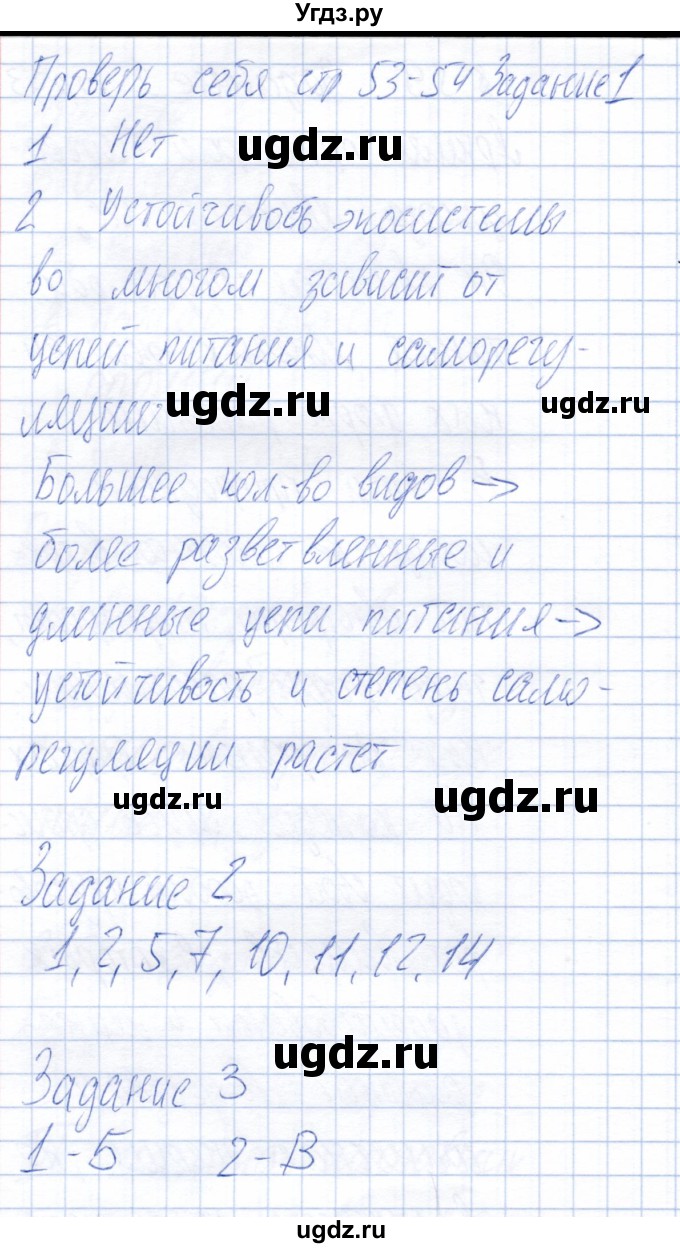 Угдз.ру
Проверь себя стр 53-54 Задание 1
1 Нет
ugdz.ru
2 Устойчивость экосистемы
во многом зависит от
цепей питания и саморегу-
ugdz.ru
ugdz.ru
ляции
Большее кол-во видов →
более разветвленные и
длинные цепи питания →
устойчивость и степень само-
регуляции растет
ugdz.ru
ugdz.ru
Задание 2
1, 2, 5, 7, 10, 11, 12, 14
ugdz.ru
Задание 3
1-Б 2-В
ugdz.ru